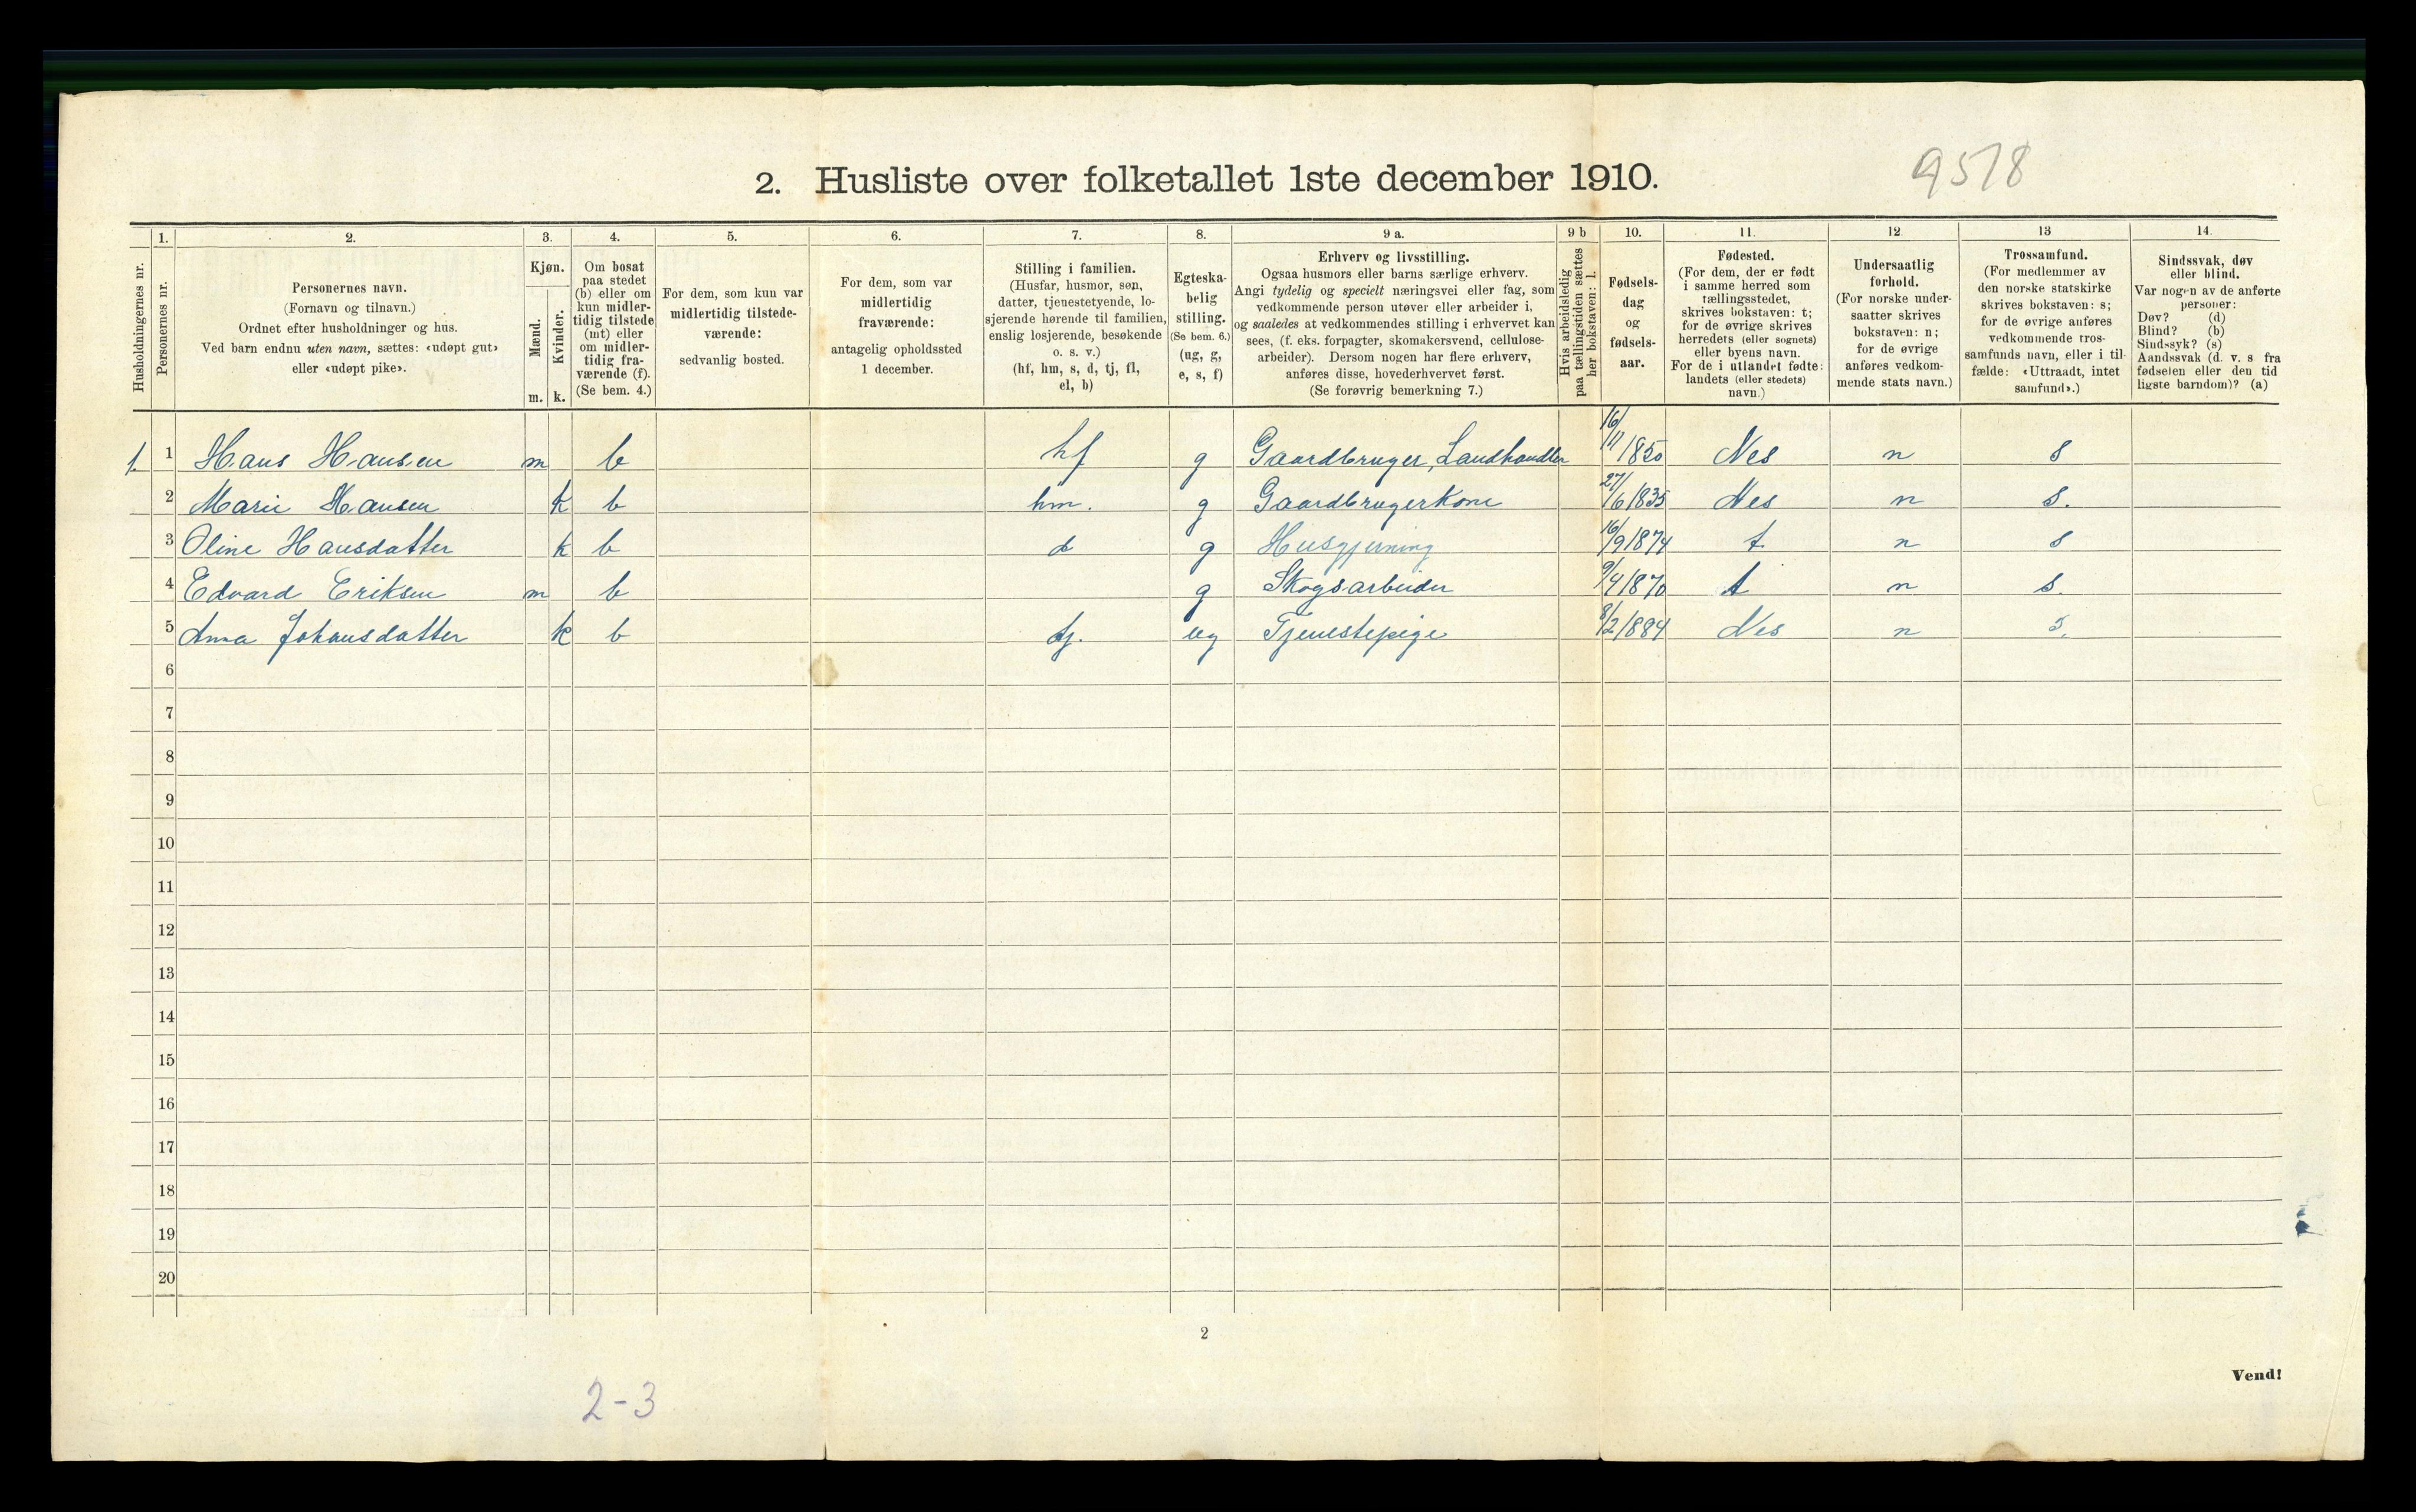 9578
2. Husliste over folketallet 1ste december 1910.
Husholdningernes nr.
1.
Personernes nr.
2.
Personernes navn.
(Fornavn og tilnavn.)
Ordnet efter husholdninger og hus.
Ved barn endnu uten navn, sættes: «udøpt gut»
eller «udøpt pike».
3.
Kjøn.
Mænd.
Kvinder.
m. k.
4.
Om bosat
paa stedet
(b) eller om
kun midler-
tidig tilstede
(mt) eller
om midler-
tidig fra-
værende (f).
(Se bem. 4.)
5.
For dem, som kun var
midlertidig tilstede-
værende:
sedvanlig bosted.
6.
For dem, som var
midlertidig
fraværende:
antagelig opholdssted
1 december.
7.
Stilling i familien.
(Husfar, husmor, søn,
datter, tjenestetyende, lo-
sjerende hørende til familien,
enslig losjerende, besøkende
o. s. v.)
(hf, hm, s, d, tj, fl,
el, b)
8.
Egteska-
belig
stilling.
(Se bem. 6.)
(ug, g,
e, s, f)
9 a.
Erhverv og livsstilling.
Ogsaa husmors eller barns særlige erhverv.
Angi tydelig og specielt næringsvei eller fag, som
vedkommende person utøver eller arbeider i,
og saaledes at vedkommendes stilling i erhvervet kan
sees, (f. eks. forpagter, skomakersvend, cellulose-
arbeider). Dersom nogen har flere erhverv,
anføres disse, hovederhvervet først.
(Se forøvrig bemerkning 7.)
9 b
Hvis arbeidsledig
paa tællingstiden sættes
her bokstaven: l.
10.
Fødsels-
dag
og
fødsels-
aar.
11.
Fødested.
(For dem, der er født
i samme herred som
tællingsstedet,
skrives bokstaven: t;
for de øvrige skrives
herredets (eller sognets)
eller byens navn.
For de i utlandet fødte:
landets (eller stedets)
navn.)
12.
Undersaatlig
forhold.
(For norske under-
saatter skrives
bokstaven: n;
for de øvrige
anføres vedkom-
mende stats navn.)
13
Trossamfund.
(For medlemmer av
den norske statskirke
skrives bokstaven: s;
for de øvrige anføres
vedkommende tros-
samfunds navn, eller i til-
fælde: «Uttraadt, intet
samfund».)
14.
Sindssvak, døv
eller blind.
Var nogen av de anførte
personer:
Døv? (d)
Blind? (b)
Sindssyk? (s)
Aandssvak (d. v. s fra
fødselen eller den tid
ligste barndom)? (a)
1. 1 Hans Hansen m b hf g Gaardbruger, Landhandler 16/11 1850 Nes n s
2 Marie Hansen k b hm. g Gaardbrugerkone 27/6 1835 Nes n s.
3 Oline Hansdatter k b d g Husgjerning 16/9 1874 t. n s
4 Edvard Eriksen m b g Skogsarbeider 9/4 1870 t n s.
5 Anna Johansdatter k b tj. ug Tjenestepige 8/2 1884 Nes n s.
6
7
8
9
10
11
12
13
14
15
16
17
18
19
20
2
Vend!
2-3